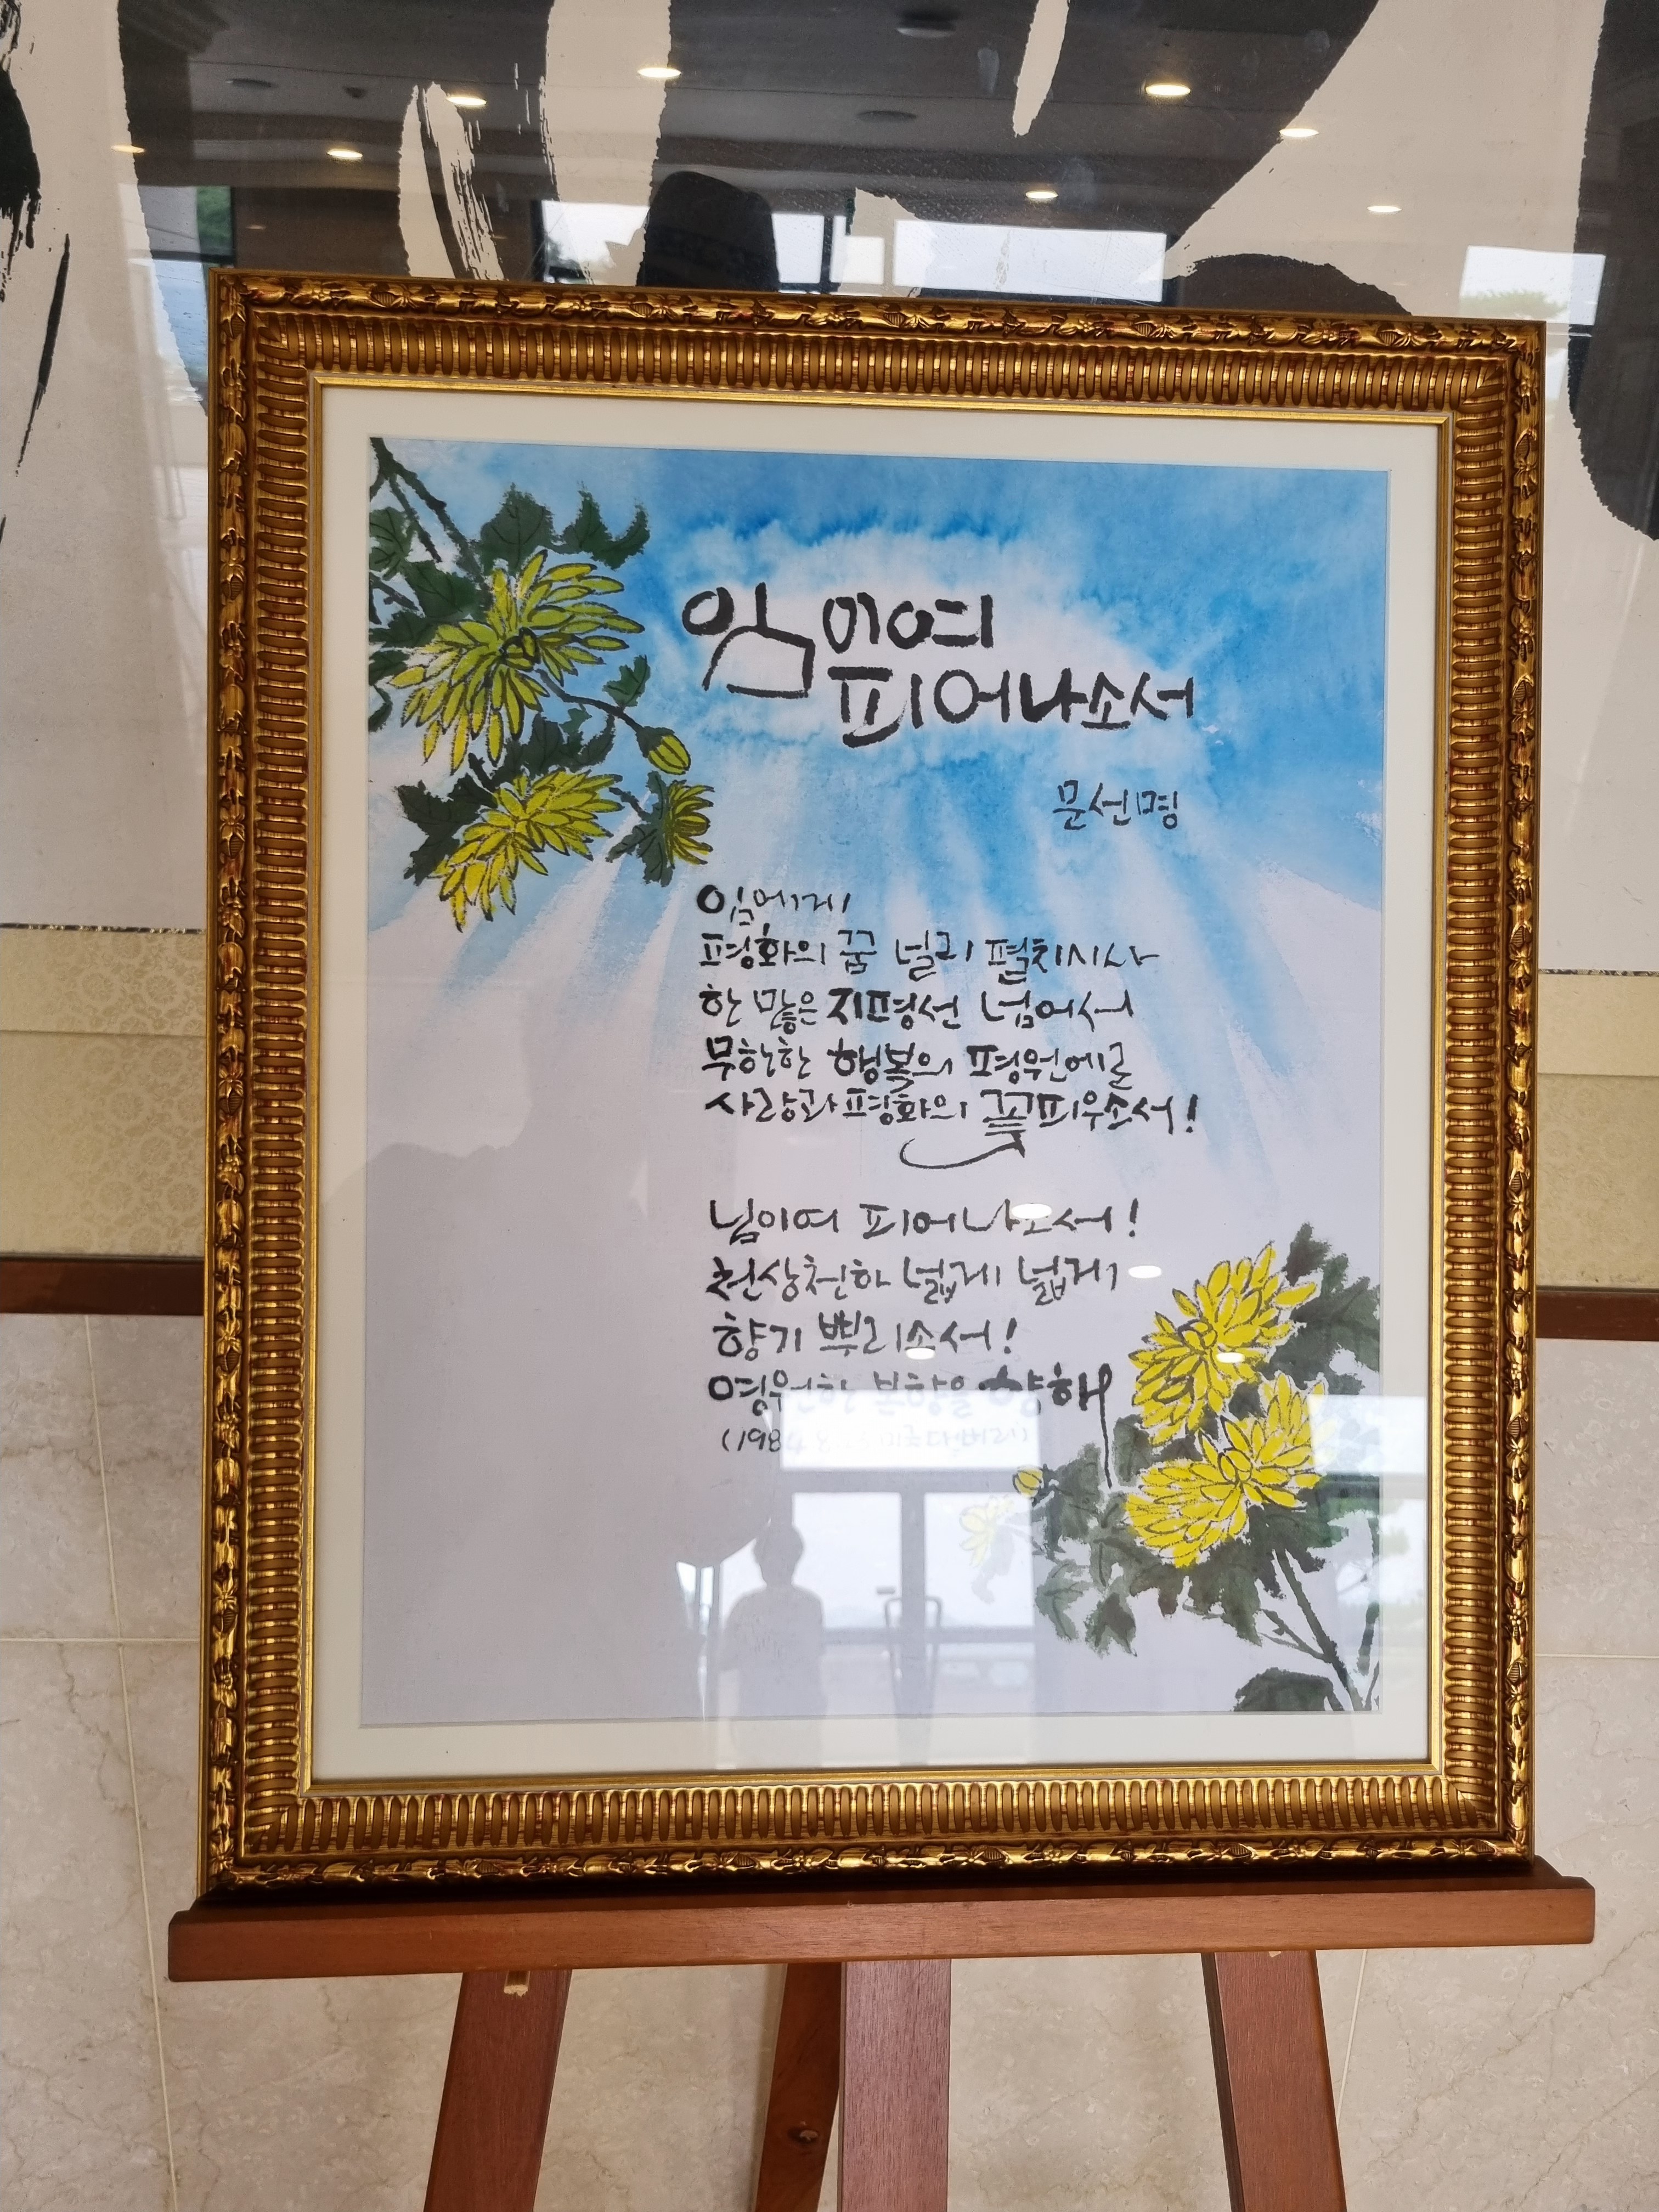 임이여
피어나소서
문선명
임에게
평화의 꿈 널리 펼치시사
한 많은 지평선 넘어서
무한한 행복의 평원에로
사랑과 평화의 꽃 피우소서!
님이여 피어나소서!
천상천하 넓게 넓게
향기 뿌리소서!
영원한 본향을 향해
(1984